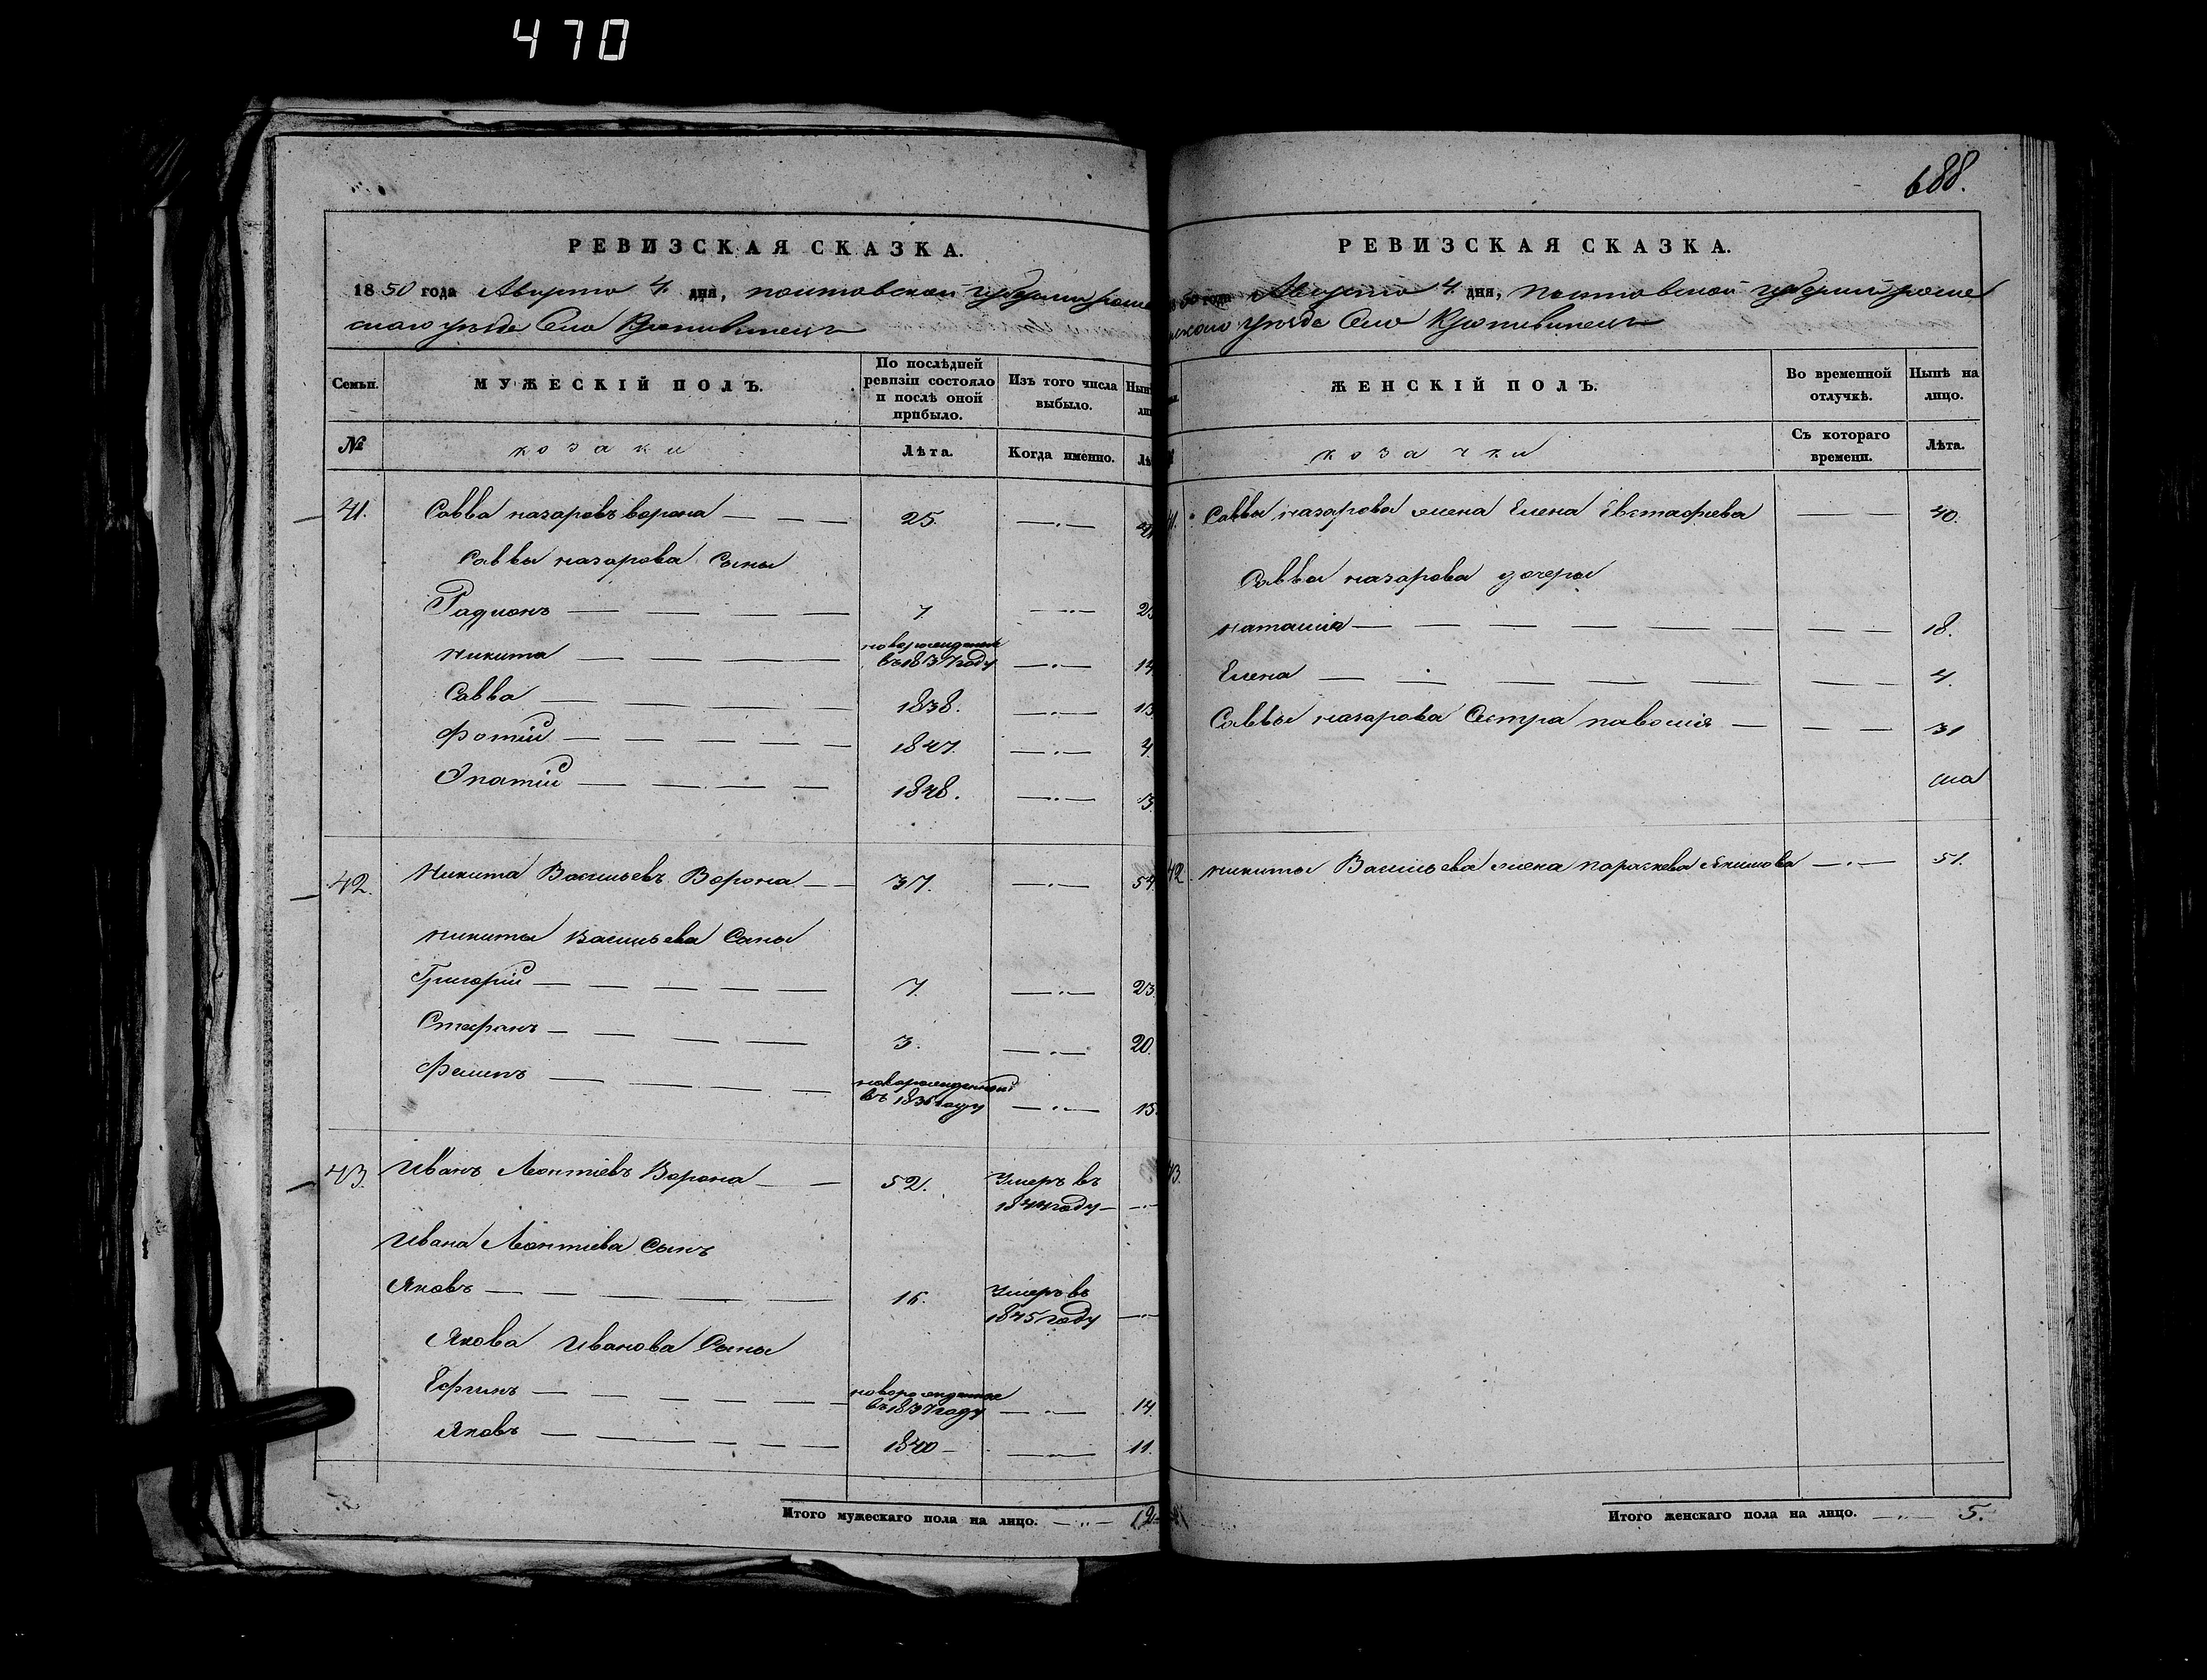 470
688.
РЕВИЗСКАЯ СКАЗКА.
1850 года Августа 4. дня, полтавской губернии роме
скаго уѣзда Село Кропивинецъ
Семьи. МУЖЕСКІЙ ПОЛЪ. По послѣдней ревизіи состояло и послѣ оной прибыло. Изъ того числа выбыло. Нын
№ козаки Лѣта. Когда именно. Лѣ
41. Савва назаровъ ворона — — — 25. —.—
Саввы назарова Сыны
Радионъ — — — — 7. —.— 2
никита — — — — новорожденой въ 1837 году —.— 14
Савва — — — — 1838. —.— 13
Фотій — — — — 1847. —.— 4
Ипатій — — — — 1848. —.— 3
42. Никита Васильевъ Ворона — — 37. —.— 54
никиты Васильева Сыны
Григорій — — — — 7. —.— 23.
Стефанъ — — — — 3. —.— 20.
Филипъ — — — — новорожденной въ 1836 году —.— 15.
43. Иванъ Леонтіевъ Ворона — — 52. Умеръ въ 1844 году — —
Ивана Леонтіева Сынъ
Яковъ — — — — 16. Умеръ въ 1845 году —
Якова Иванова Сыны
Ефимъ — — — — новорожденное въ 1837 году —.— 14.
Яковъ — — — — 1840 — —.— 11.
Итого мужескаго пола на лицо. — „ — 12
РЕВИЗСКАЯ СКАЗКА.
50 года Августа 4. дня, полтавской губерніи роме
нскаго уѣзда Село Кропивинецъ
ЖЕНСКІЙ ПОЛЪ. Во временной отлучкѣ. Нынѣ на лицо.
козачки Съ котораго времени. Лѣта.
41. Саввы назарова жена Елена Евстафиева — — 40.
Саввы назарова дочеры
наталия — — — — — — — 18.
Елена — — — — — — — 4.
Саввы назарова Сестра паволия — — — 31
42 никиты Васильева жена параскева Якимова —.— 51.
43.
Итого женскаго пола на лицо. — „ — 5.